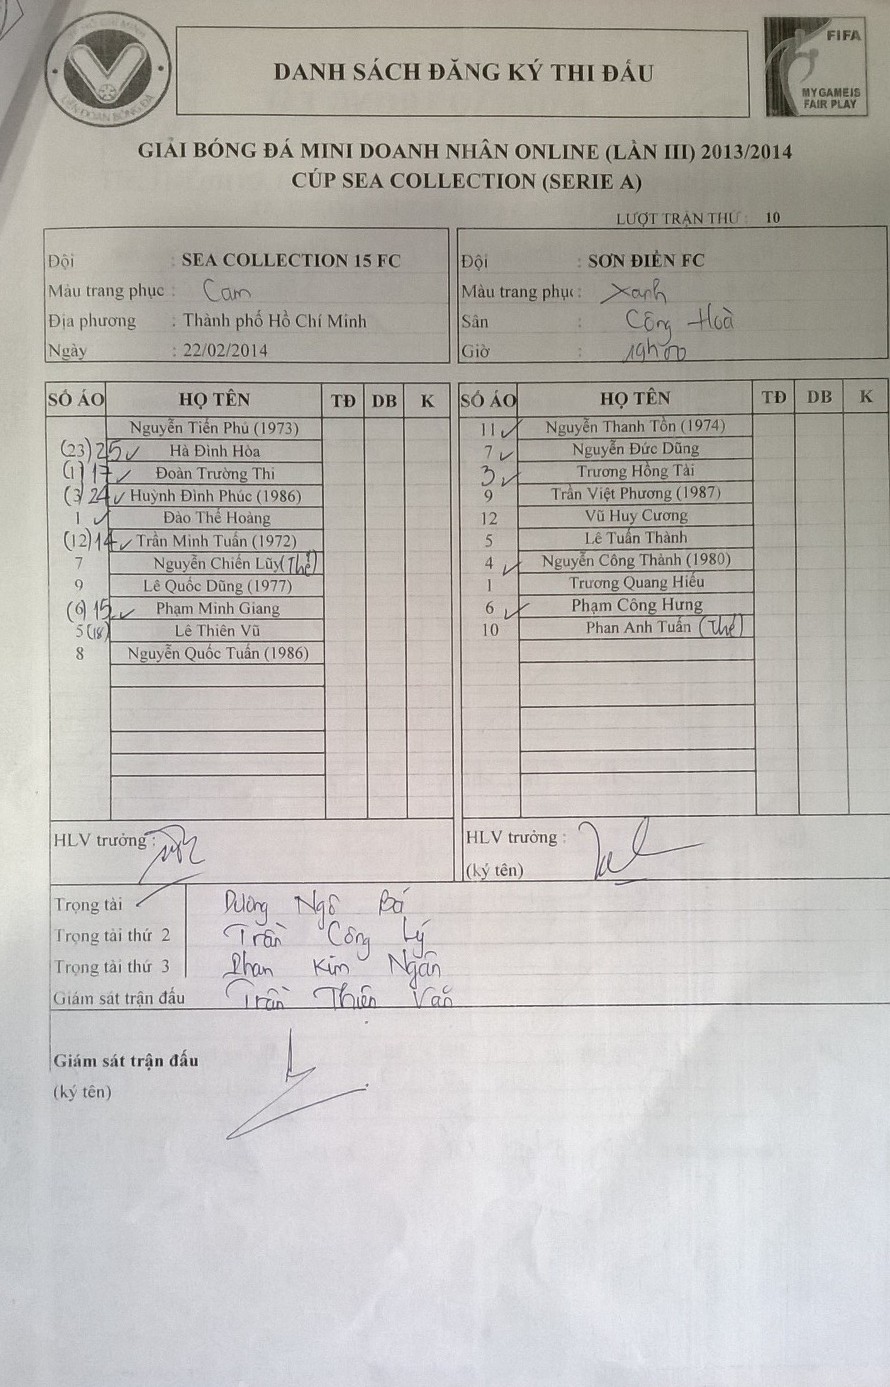 LIÊN ĐOÀN BÓNG ĐÁ
DANH SÁCH ĐĂNG KÝ THI ĐẤU
FIFA
MY GAME IS
FAIR PLAY
GIẢI BÓNG ĐÁ MINI DOANH NHÂN ONLINE (LẦN III) 2013/2014
CÚP SEA COLLECTION (SERIE A)
LƯỢT TRẬN THỨ : 10
Đội : SEA COLLECTION 15 FC
Màu trang phục : Cam
Địa phương : Thành phố Hồ Chí Minh
Ngày : 22/02/2014
Đội : SƠN ĐIỀN FC
Màu trang phục : Xanh
Sân : Cộng Hoà
Giờ : 19h00
SỐ ÁO HỌ TÊN TĐ DB K
Nguyễn Tiến Phú (1973)
(23) 25 ✓ Hà Đình Hòa
(1) 17 ✓ Đoàn Trường Thi
(3) 24 ✓ Huỳnh Đình Phúc (1986)
1 ✓ Đào Thế Hoàng
(12) 14 ✓ Trần Minh Tuấn (1972)
7 Nguyễn Chiến Lũy (Thẻ)
9 Lê Quốc Dũng (1977)
(6) 15 ✓ Phạm Minh Giang
5 (18) Lê Thiên Vũ
8 Nguyễn Quốc Tuấn (1986)
SỐ ÁO HỌ TÊN TĐ DB K
11 ✓ Nguyễn Thanh Tồn (1974)
7 ✓ Nguyễn Đức Dũng
3 ✓ Trương Hồng Tài
9 Trần Việt Phương (1987)
12 Vũ Huy Cương
5 Lê Tuấn Thành
4 ✓ Nguyễn Công Thành (1980)
1 Trương Quang Hiếu
6 ✓ Phạm Công Hưng
10 Phan Anh Tuấn (Thẻ)
HLV trưởng :
HLV trưởng :
(ký tên)
Trọng tài Dương Ngô Bá
Trọng tài thứ 2 Trần Công Lý
Trọng tài thứ 3 Phan Kim Ngân
Giám sát trận đấu Trần Thiên Văn
Giám sát trận đấu
(ký tên)